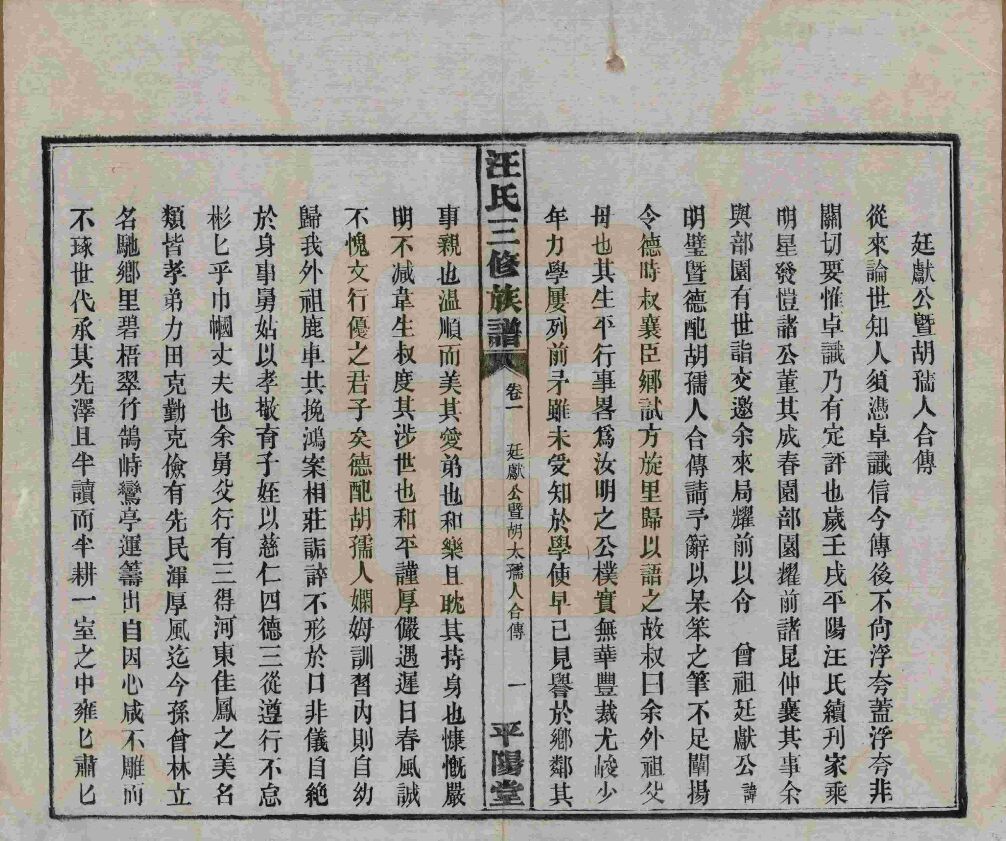 廷獻公暨胡孺人合傳
從來論世知人須憑卓識信今傳後不尙浮夸蓋浮夸非
關切要惟卓識乃有定評也歲壬戌平陽汪氏續刋家乘
明星發愷諸公董其成春園部園耀前諸昆仲襄其事余
與部園有世誼交邀余來局耀前以令 曾祖廷獻公諱
明璧暨德配胡孺人合傳請予辭以呆笨之筆不足闡揚
令德時叔襄臣鄉試方旋里歸以語之故叔曰余外祖父
母也其生平行事畧爲汝明之公樸實無華豐裁尤峻少
年力學屢列前矛雖未受知於學使早已見譽於鄉鄰其
汪氏三修族譜
卷一
廷獻公暨胡太孺人合傳
一
平陽堂
事親也温順而美其愛弟也和樂且耽其持身也慷慨嚴
明不減韋生叔度其涉世也和平謹厚儼遇遲日春風誠
不愧文行優之君子矣德配胡孺人嫻姆訓習內則自幼
歸我外祖鹿車共挽鴻案相莊詬誶不形於口非儀自絶
於身事舅姑以孝敬育子姪以慈仁四德三從遵行不怠
彬匕乎巾幗丈夫也余舅父行有三得河東佳鳳之美名
類皆孝弟力田克勤克儉有先民渾厚風迄今孫曾林立
名馳鄉里碧梧翠竹鵠峙鸞亭運籌出自因心咸不雕而
不琢世代承其先澤且半讀而半耕一室之中雍匕肅匕